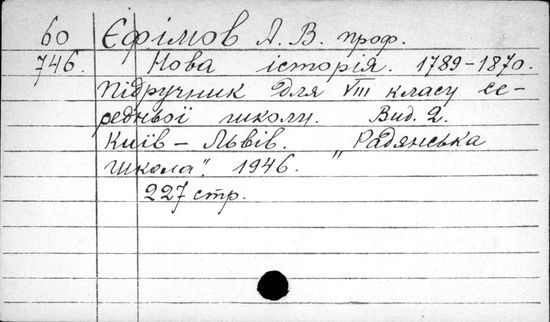 60 Єфімов А. В. проф.
746. Нова історія. 1789-1870.
Підручник для VIII класу се-
редньої школи. Вид. 2.
Київ - Львів. "Радянська
школа". 1946.
227 стр.